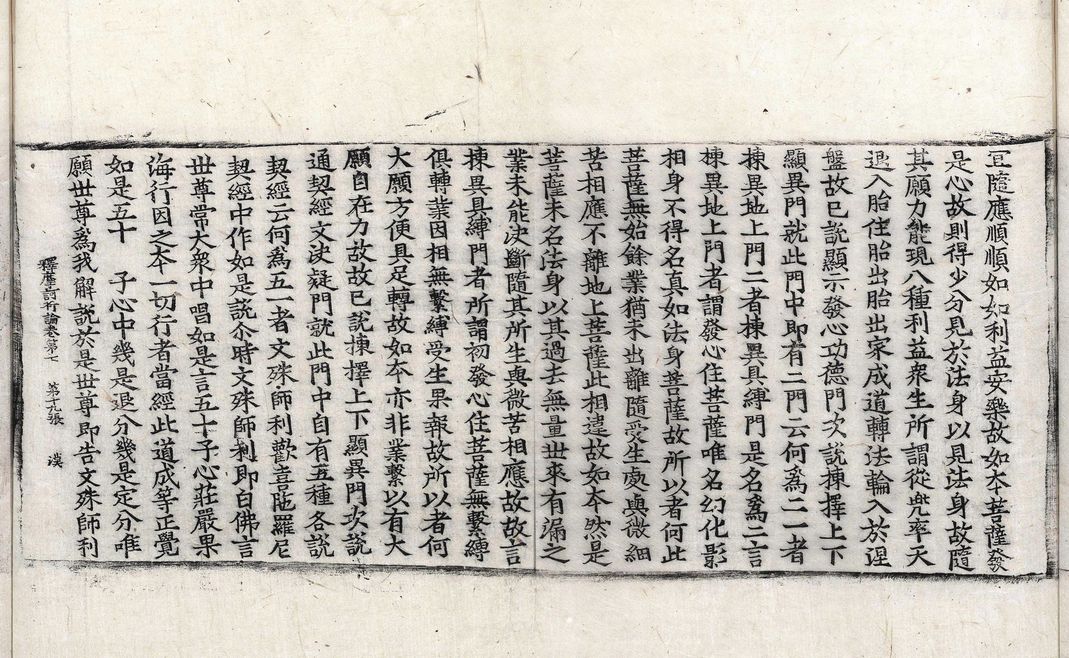 宜隨應順順如如利益安樂故如本菩薩發
是心故則得少分見於法身以見法身故隨
其願力能現八種利益衆生所謂從兜率天
退入胎住胎出胎出家成道轉法輪入於涅
盤故已說顯示發心功德門次說揀擇上下
顯異門就此門中即有二門云何爲二一者
揀異地上門二者揀異具縛門是名爲二言
揀異地上門者謂發心住菩薩唯名幻化影
相身不得名真如法身菩薩故所以者何此
菩薩無始餘業猶未出離隨受生處與微細
苦相應不離地上菩薩此相違故如本然是
菩薩未名法身以其過去無量世來有漏之
業未能決斷隨其所生與微苦相應故故言
揀異具縛門者所謂初發心住菩薩無繫縛
俱轉業因相無繫縛受生果報故所以者何
大願方便具足轉故如本亦非業繫以有大
願自在力故故已說揀擇上下顯異門次說
通契經文決疑門就此門中自有五種各說
契經云何為五一者文殊師利歡喜陁羅尼
契經中作如是說尒時文殊師利即白佛言
世尊常大衆中唱如是言五十子心莊嚴果
海行因之本一切行者當經此道成等正覺
如是五十 子心中幾是退分幾是定分唯
願世尊爲我解說於是世尊即告文殊師利
釋摩訶衍論卷第七 第十九張 漢